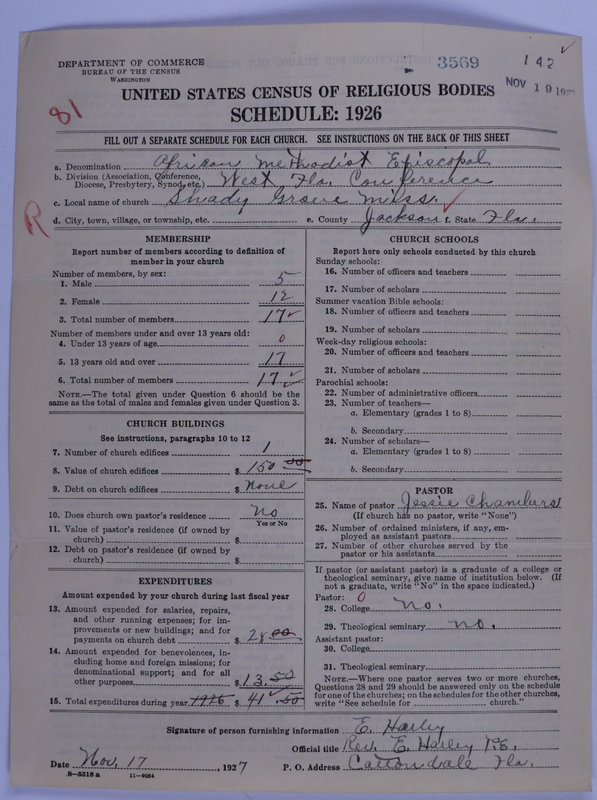 DEPARTMENT OF COMMERCE
BUREAU OF THE CENSUS
WASHINGTON
3569
142
NOV 19 192
81
UNITED STATES CENSUS OF RELIGIOUS BODIES
SCHEDULE: 1926
FILL OUT A SEPARATE SCHEDULE FOR EACH CHURCH. SEE INSTRUCTIONS ON THE BACK OF THIS SHEET
a. Denomination African Methodist Episcopal
b. Division (Association, Conference, Diocese, Presbytery, Synod, etc.) West Fla. Conference
c. Local name of church Shady Grove Miss.
R
d. City, town, village, or township, etc. e. County Jackson f. State Fla.
MEMBERSHIP
Report number of members according to definition of
member in your church
Number of members, by sex:
1. Male 5
2. Female 12
3. Total number of members 17
Number of members under and over 13 years old:
4. Under 13 years of age 0
5. 13 years old and over 17
6. Total number of members 17
NOTE.—The total given under Question 6 should be
same as the total of males and females given under Question 3.
CHURCH BUILDINGS
See instructions, paragraphs 10 to 12
7. Number of church edifices 1
8. Value of church edifices $ 150 00
9. Debt on church edifices $ None
10. Does church own pastor's residence No
Yes or No
11. Value of pastor's residence (if owned by
church) $
12. Debt on pastor's residence (if owned by
church) $
EXPENDITURES
Amount expended by your church during last fiscal year
13. Amount expended for salaries, repairs,
and other running expenses; for im-
provements or new buildings; and for
payments on church debt $ 28 00
14. Amount expended for benevolences, in-
cluding home and foreign missions; for
denominational support; and for all
other purposes $ 13.50
15. Total expenditures during year 1926 $ 41.50
CHURCH SCHOOLS
Report here only schools conducted by this church
Sunday schools:
16. Number of officers and teachers
17. Number of scholars
Summer vacation Bible schools:
18. Number of officers and teachers
19. Number of scholars
Week-day religious schools:
20. Number of officers and teachers
21. Number of scholars
Parochial schools:
22. Number of administrative officers
23. Number of teachers—
a. Elementary (grades 1 to 8)
b. Secondary
24. Number of scholars—
a. Elementary (grades 1 to 8)
b. Secondary
PASTOR
25. Name of pastor Jessie Chambers
(If church has no pastor, write "None")
26. Number of ordained ministers, if any, em-
ployed as assistant pastors
27. Number of other churches served by the
pastor or his assistants
If pastor (or assistant pastor) is a graduate of a college or
theological seminary, give name of institution below. (If
not a graduate, write "No" in the space indicated.)
Pastor: 0
28. College no.
29. Theological seminary no.
Assistant pastor:
30. College
31. Theological seminary
NOTE.—Where one pastor serves two or more churches,
Questions 28 and 29 should be answered only on the schedule
for one of the churches; on the schedules for the other churches,
write "See schedule for church."
Signature of person furnishing information E. Harley
Official title Rev. E. Harley P.E.
Date Nov. 17, 1927 P. O. Address Cottondale Fla.
8-5518 a 11-9034